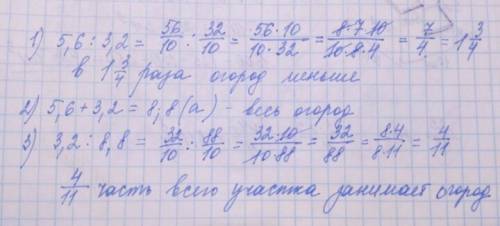 1) 5,6 : 3,2 = 56/10 : 32/10 = 56·10/10·32 = 8·7·10/10·8·4 = 7/4 = 1 3/4
в 1 3/4 раза огород меньше
2) 5,6 + 3,2 = 8,8 (а) - весь огород
3) 3,2 : 8,8 = 32/10 : 88/10 = 32·10/10·88 = 32/88 = 8·4/8·11 = 4/11
4/11 часть всего участка занимает огород